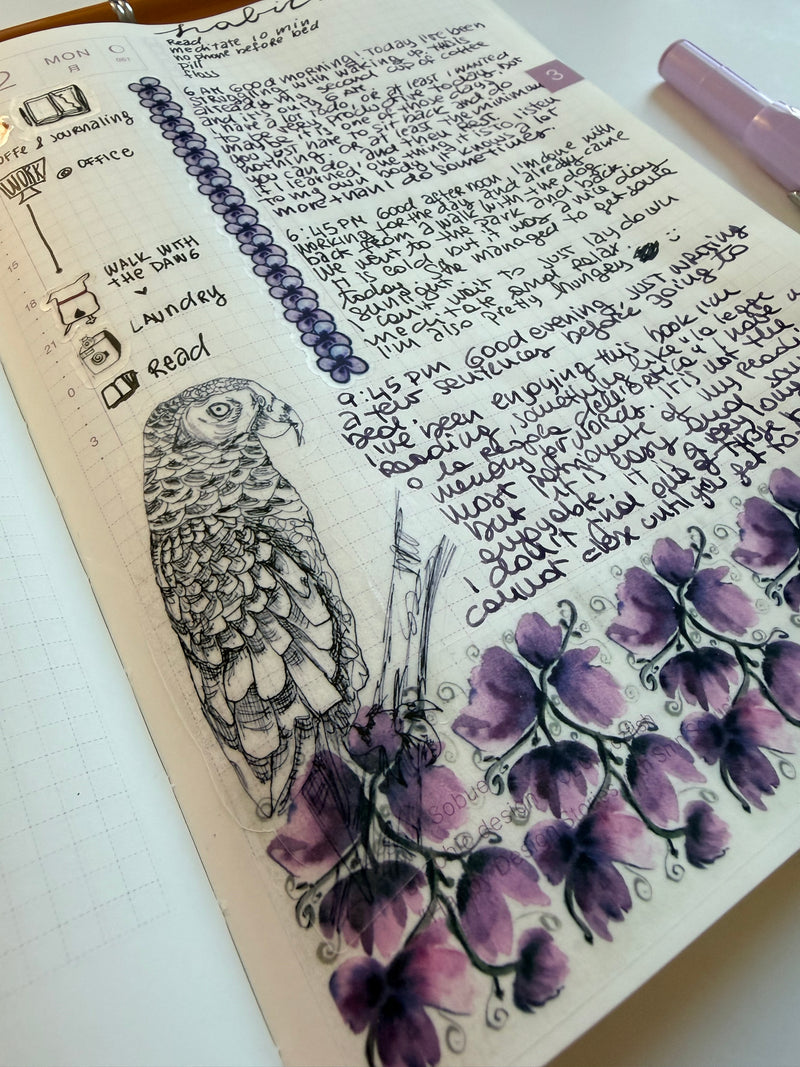 habit
Read
meditate 10 min
no phone before bed
pill
floss
2 MON
月
3
OFFE & JOURNALING
WORK
@ OFFICE
15
WALK WITH
THE DAWG
18
LAUNDRY
21
Read
0
3
6 AM Good morning! Today I've been
struggling with waking up. This
already is my second cup of coffee
and it's only
I have a lot to do or at least I wanted
to be really productive today, but
maybe it is one of those days
you just have to sit back and do
nothing, or at least the minimum
you can do, and then rest.
If I learned one thing, it is to listen
to my own body, it knows a lot
more than I do sometimes.
6:45 PM Good afternoon! I'm done with
working for the day and already came
back from a walk with the dog.
We went to the park and back.
It is cold but it was a nice day
today. She managed to get some
sunlight.
I can't wait to just lay down
meditate and relax.
I'm also pretty hungry :)
9:45 PM Good evening, just writing
a few sentences before going to
bed.
I've been enjoying this book I'm
reading, something like "la legge
o la regola dell'
memory for words. It is not the
most passionate of my
but it is easy and
enjoyable.
I don't
cannot close until you get to
Sobue
design
Design